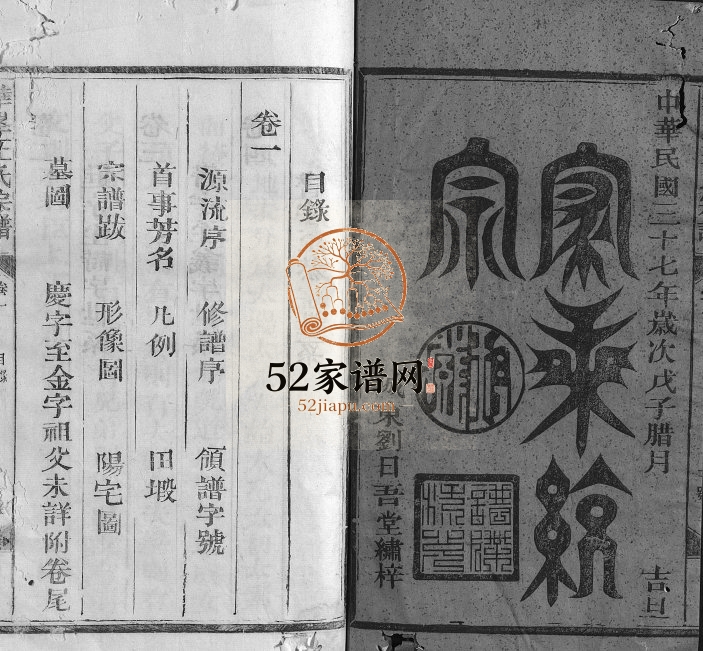 中華民國三十七年歲次戊子腊月 吉旦
家乘統
宗
劉日吾堂繡梓
目錄
卷一
源流序 修譜序 領譜字號
首事芳名 凡例 田塅
宗譜跋 形像圖 陽宅圖
墓圖 慶字至金字祖父未詳附卷尾
氏宗譜 卷一 目錄
52家谱网
52jiapu.com